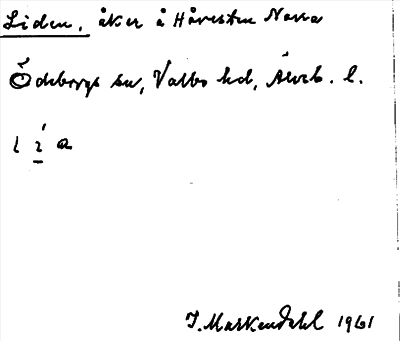 Liden, åker å Håvesten Norra
Ödeborgs sn, Valbo hd, Älvsb. l.
I. Markendahl 1961